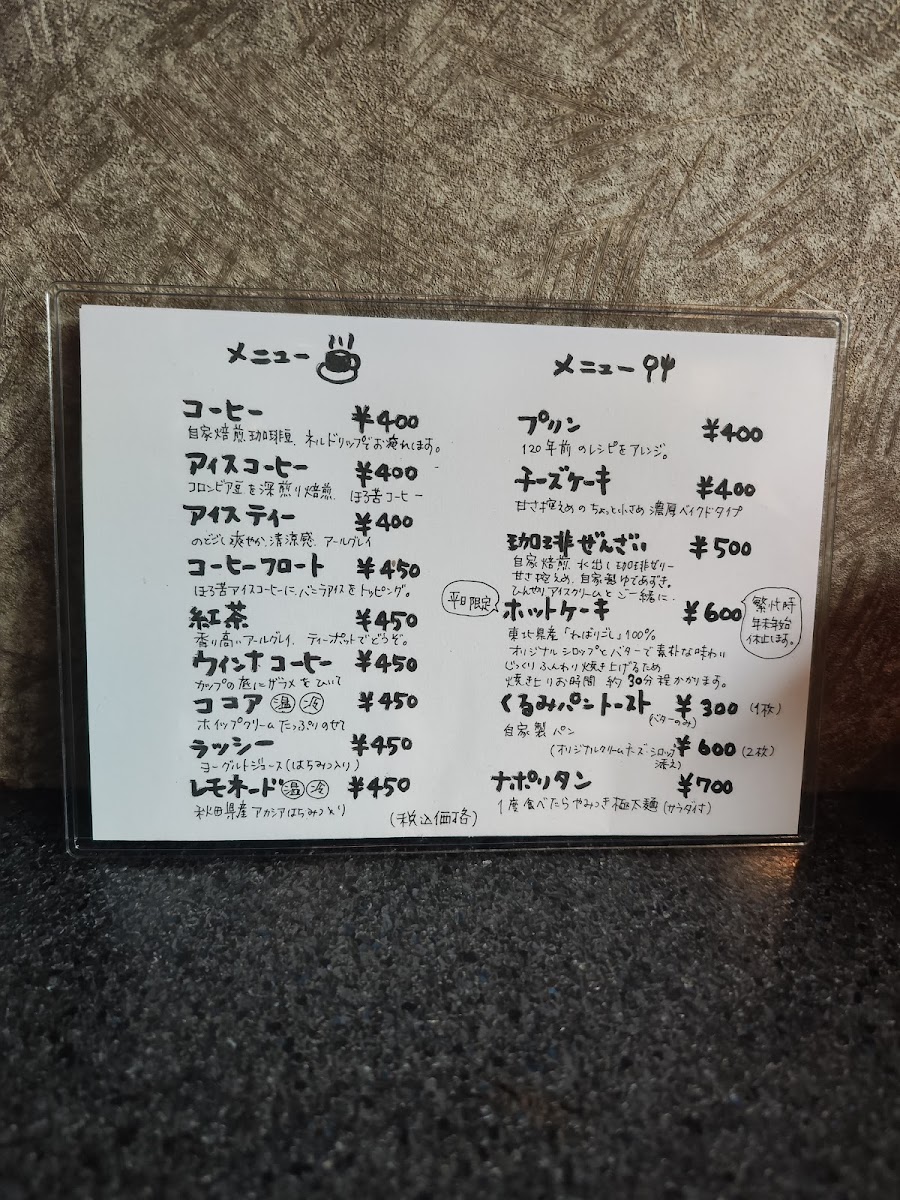 メニュー
コーヒー ¥400
自家焙煎珈琲豆、ネルドリップでお淹れします。
アイスコーヒー ¥400
コロンビア豆を深煎り焙煎、ほろ苦コーヒー
アイスティー ¥400
のどごし爽やか、清涼感、アールグレイ
コーヒーフロート ¥450
ほろ苦アイスコーヒーに、バニラアイスをトッピング。
紅茶 ¥450
香り高いアールグレイ、ティーポットでどうぞ。
ウィンナコーヒー ¥450
カップの底にザラメをひいて
ココア 温 冷 ¥450
ホイップクリームたっぷりのせて
ラッシー ¥450
ヨーグルトジュース(はちみつ入り)
レモネード 温 冷 ¥450
秋田県産アカシアはちみつ入り
(税込価格)
メニュー
プリン ¥400
120年前のレシピをアレンジ。
チーズケーキ ¥400
甘さ控えめのちょっと小さめ濃厚ベイクドタイプ
珈琲ぜんざい ¥500
自家焙煎、水出し珈琲ゼリー
甘さ控えめ、自家製ゆであずき。
ひんやりアイスクリームとご一緒に。
平日限定
ホットケーキ ¥600
繁忙時
年末年始
休止します。
東北県産「ねばりごし」100%
オリジナルシロップとバターで素朴な味わい
じっくりふんわり焼き上げるため
焼き上りお時間 約30分程かかります。
くるみパントースト ¥300 (1枚)
(バターのみ)
自家製パン
(オリジナルクリームチーズ・シロップ添え) ¥600 (2枚)
ナポリタン ¥700
1度食べたらやみつき極太麺(サラダ付)